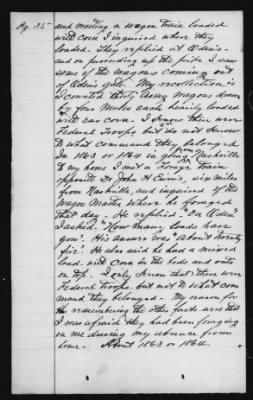 Pg. 35
and meeting a wagon train loaded
with corn I inquired where they
loaded. They replied at Ewin's -
and on proceeding up the pike I saw
some of the wagons coming out
of Ewin's gate. My recollection is
I counted thirty Army wagons drawn
by four Mules each heavily loaded
with ear corn. I know they were
Federal Troops but do not know
to what command they belonged
In 1863 or 1864 in going from Nashville
to my home I met a Forage train
opposite Dr John H Ewin's, six miles
from Nashville and inquired of the
Wagon Master where he foraged
that day - He replied "On Ewin"
I asked. "How many loads have
you". His answer was "about twenty
five". He also said he had a mixed
load with corn in the beds and oats
on top. I only know that these were
Federal troops but not to what com
mand they belonged - My reason for
remembering the other facts was that
I was afraid they had been foraging
on me during my absence from
home. - About 1863 or 1864.